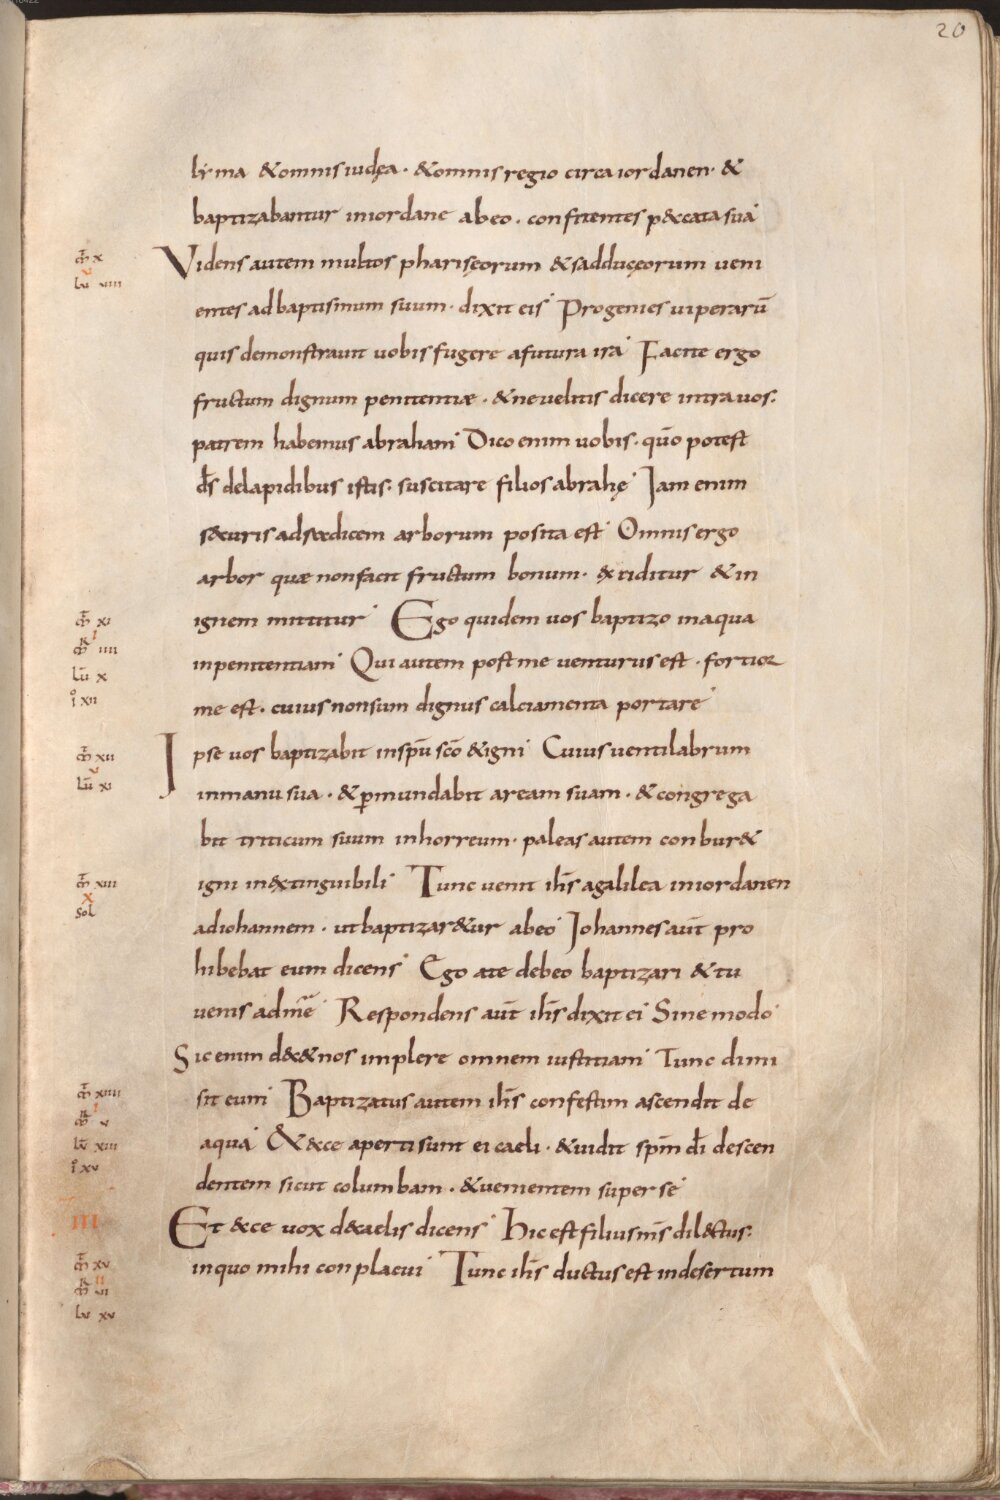 20
lẏma &omnis iudęa · &omnis regio circa iordanen · &
baptizabantur iniordane abeo · confitentes p&ccata sua
m̄ x
v
Lū viiii
Videns autem multos phariseorum &sadduceorum veni
entes ad baptismum suum · dixit eis Progenies viperarū
quis demonstravit vobis fugere afutura ira Facite ergo
fructum dignum penitentiæ · &ne velitis dicere intra vos ·
patrem habemus abraham Dico enim vobis · qūo potest
d̄s delapidibus istis · suscitare filios abrahę Iam enim
s&curis ad radicem arborum posita est Omnis ergo
arbor quæ nonfacit fructum bonum · exciditur &in
m̄ xi
ignem mittitur Ego quidem vos baptizo inaqua
R I
m̄ iiii
Lū x
inpenitentiam Qui autem post me venturus est · fortior
i xii
me est · cuius nonsum dignus calciamenta portare
m̄ xii
v
Lū xi
Ipse vos baptizabit inspū scō &igni Cuius ventilabrum
inmanu sua · &permundabit aream suam · &congrega
bit triticum suum inhorreum · paleas autem conbur&
m̄ xiii
X
sol
igni inextinguibili Tunc venit ih̄s agalilea iniordanen
adiohannem · ut baptizar&ur abeo Iohannes aūt pro
hibebat eum dicens Ego ate debeo baptizari &tu
venis ad me Respondens aūt ih̄s dixit ei Sine modo
Sic enim dec&nos implere omnem iustitiam Tunc dimi
m̄ xiiii
R I
m̄ v
sit eum Baptizatus autem ih̄s confestim ascendit de
Lū xiii
aqua &&cce aperti sunt ei caeli · &vidit sp̄m d̄i descen
i xv
dentem sicut columbam · &venientem super se
III
Et &cce vox d&caelis dicens Hic est filius m̄s dil&ctus ·
m̄ xv
R II
m̄ vi
Lū xv
inquo mihi conplacui Tunc ih̄s ductus est indesertum